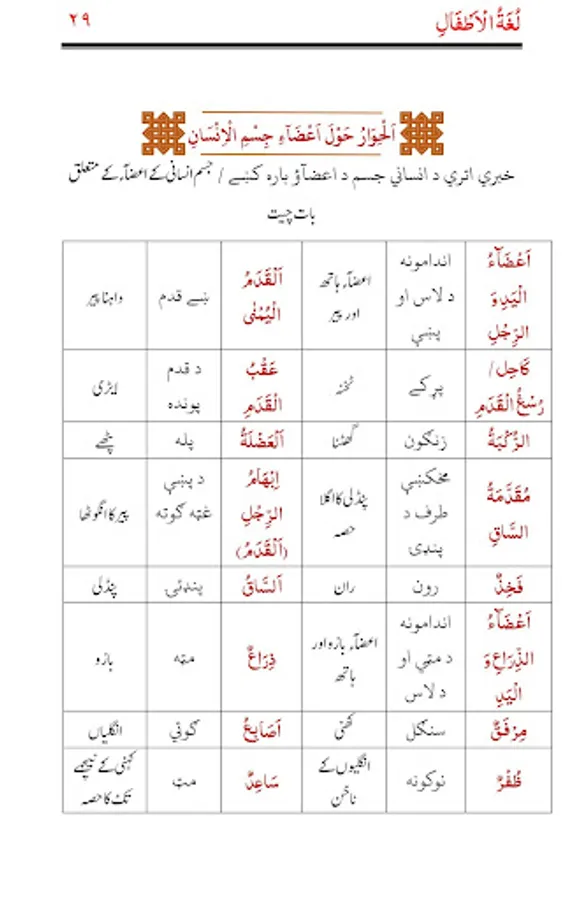 لُغَةُ الْاَطْفَالِ ۲۹
اَلْحِوَارُ حَوْلَ اَعْضَآءِ جِسْمِ الْاِنْسَانِ
خبري اتري د انساني جسم د اعضآؤ باره کښے / جسم انسانی کے اعضآء کے متعلق
بات چیت
اَعْضَآءُ
الْيَدِ وَ
الرِّجْلِ
اندامونه
د لاس او
پښې
اعضآء ہاتھ
اور پیر
اَلْقَدَمُ
الْيُمْنٰى
ښے قدم
داہنا پیر
كَاحِل/
رُسْغُ الْقَدَمِ
پړکے
ٹخنہ
عَقْبُ
الْقَدَمِ
د قدم
پونده
ایڑی
الرُّكْبَةُ
زنګون
گھٹنا
اَلْعَضْلَةُ
پله
پٹھے
مُقَدَّمَةُ
السَّاقِ
مخکښې
طرف د
پنډۍ
پنڈلی کا اگلا
حصہ
اِبْهَامُ
الرِّجْلِ
(اَلْقَدَمُ)
د پښې
غټه ګوته
پیر کا انگوٹھا
فَخِذٌ
رون
ران
اَلسَّاقُ
پنډئۍ
پنڈلی
اَعْضَآءُ
الذِّرَاعِ وَ
الْيَدِ
اندامونه
د مټې او
د لاس
اعضآء بازو اور
ہاتھ
ذِرَاعٌ
مټه
بازو
مِرْفَقٌ
سنګل
کہنی
اَصَابِعُ
ګوتې
انگلیاں
ظُفُرٌ
نوکونه
انگلیوں کے
ناخن
سَاعِدٌ
مټ
کہنی کے نیچے
تک کا حصہ